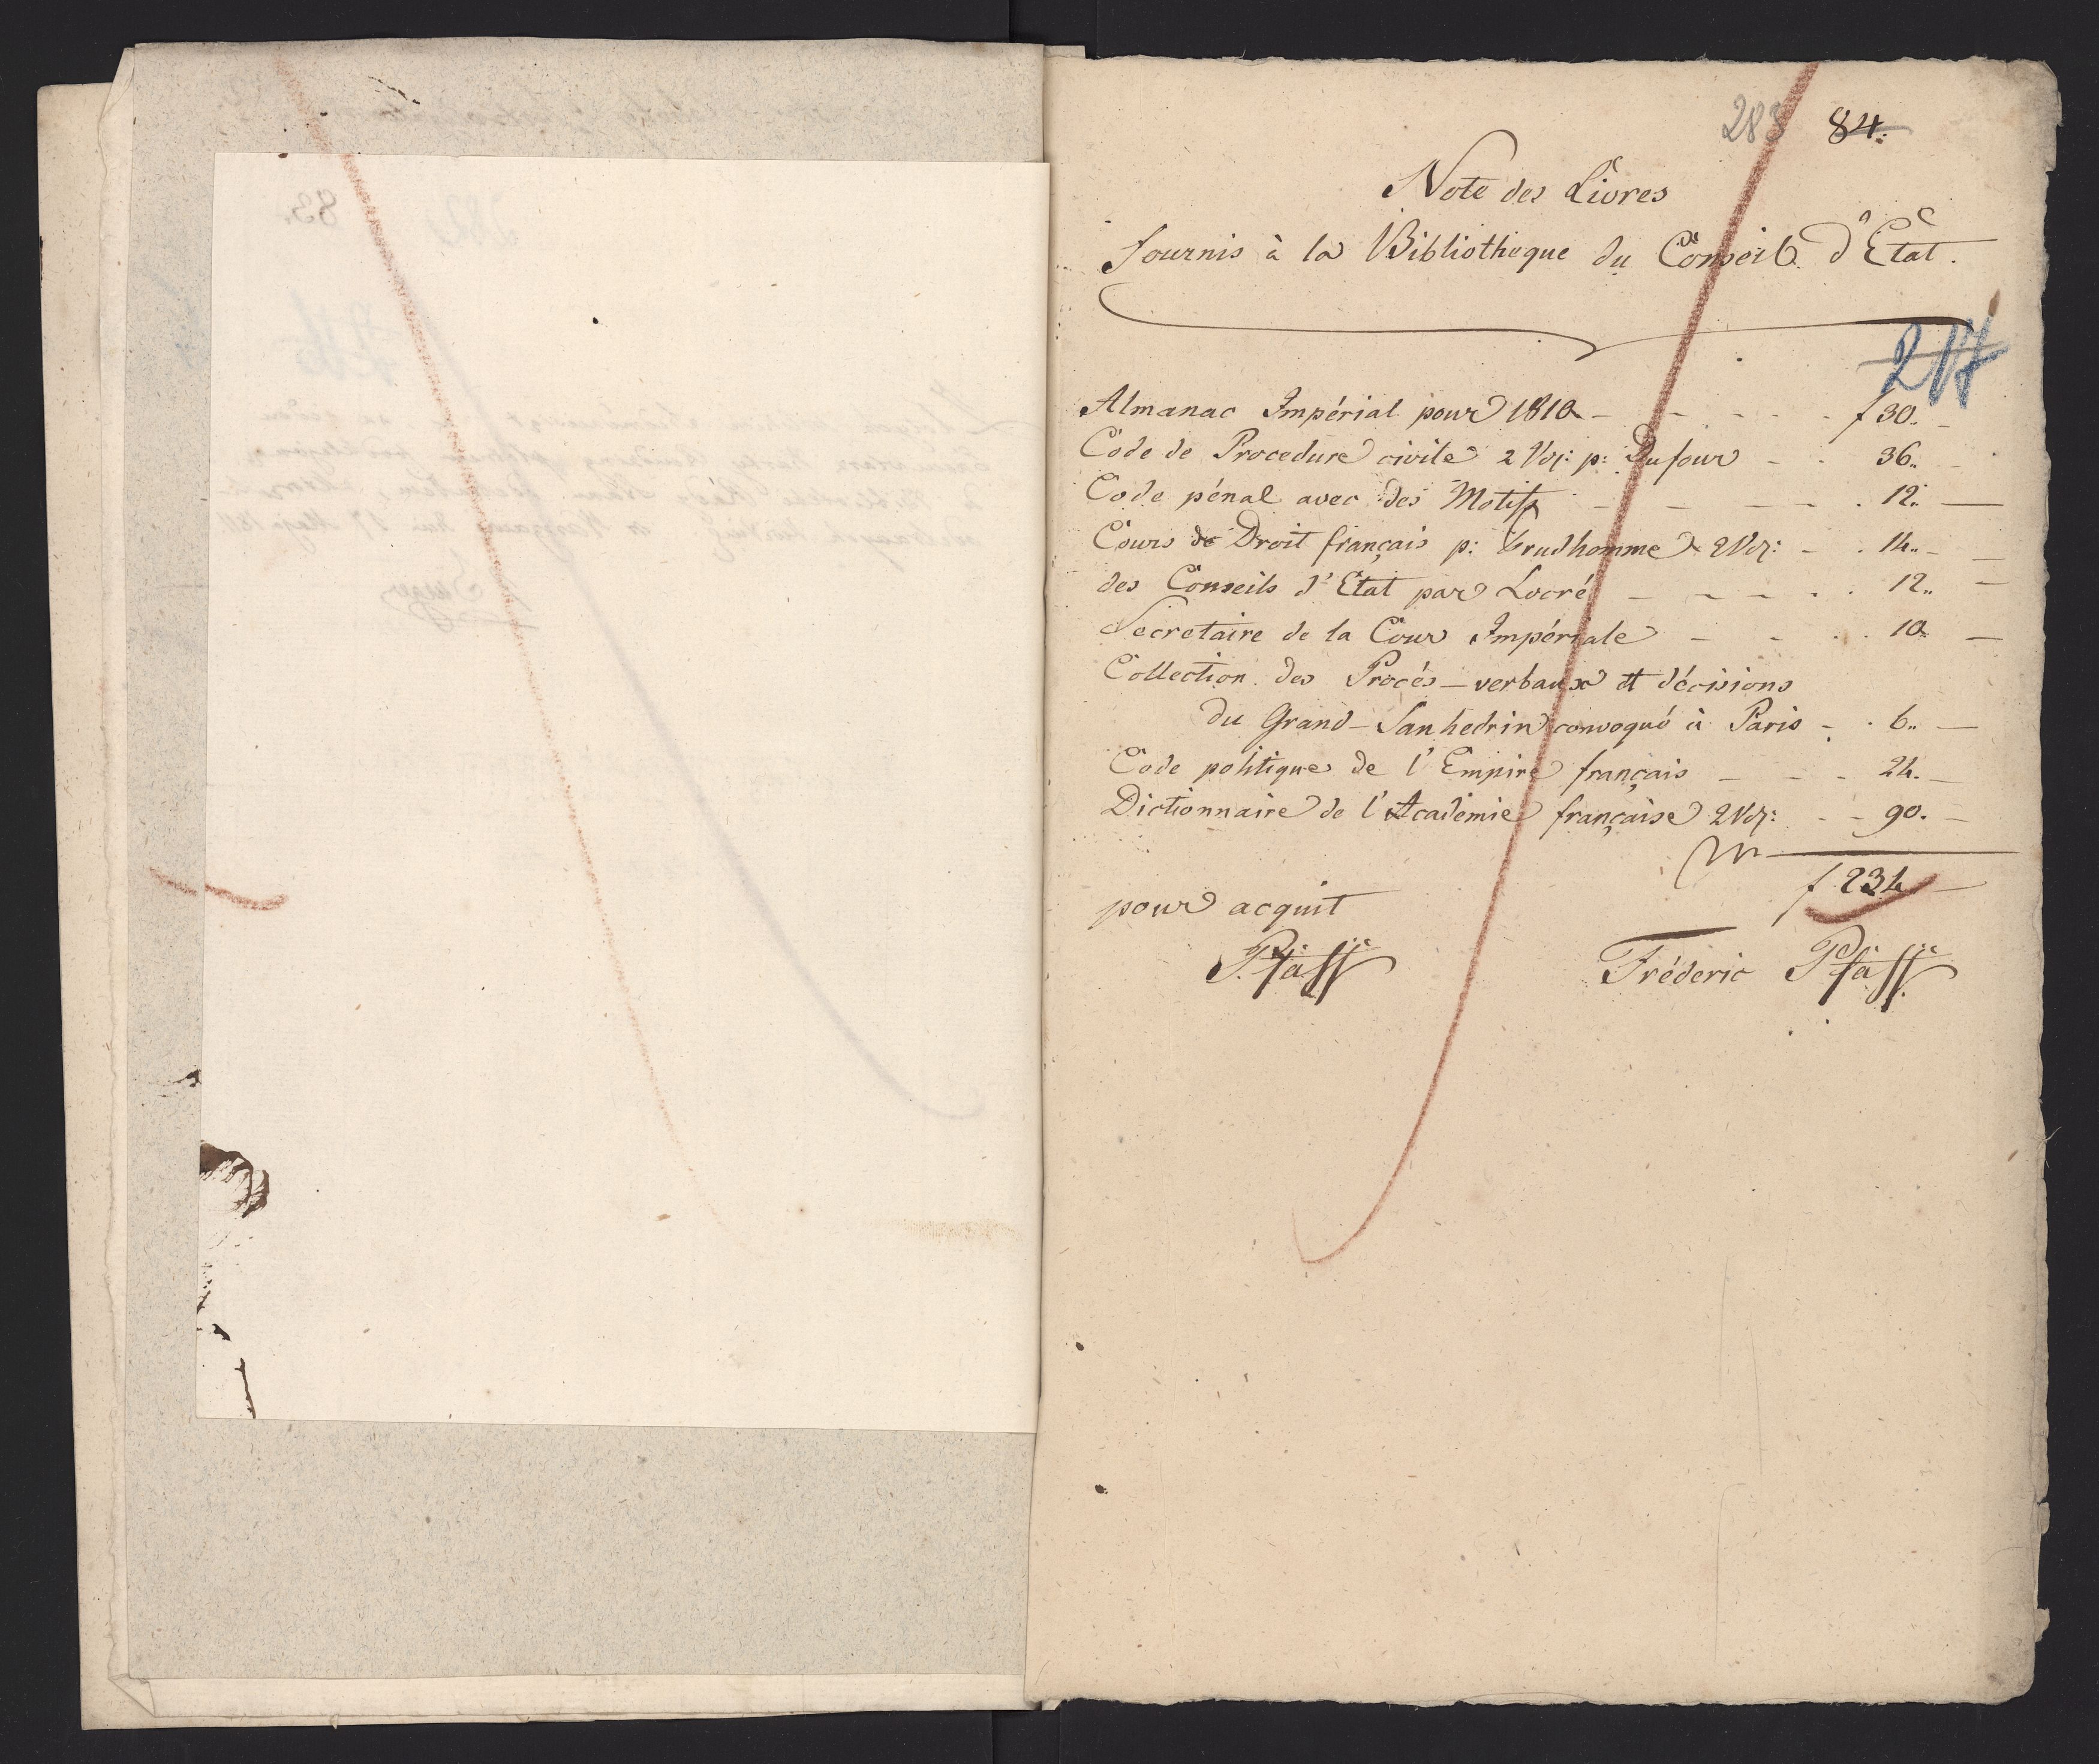 283 84.
Note des Livres
fournis à la Bibliotheque du Conseil d'Etat.
217
Almanac Impérial pour 1810 - - - - - f 30.. -
Code de Procedure civile 2 Vol: p: Dufour - - 36.. -
Code pénal avec des Motifs - - - - . 12.. -
Cours de Droit français p: Prudhomme 2 Vol: - . 14.. -
des Conseils d'Etat par Locré - - - - . 12.. -
Secretaire de la Cour Impériale - - . . 10.. -
Collection des Procés-verbaux et décisions
du Grand-Sanhedrin convoqué à Paris - . 6.. -
Code politique de l'Empire français - - - 24. -
Dictionnaire de l'Academie française 2 Vol: - - 90. -
f 234 -
pour acquit
Pfaff Fréderic Pfaff.